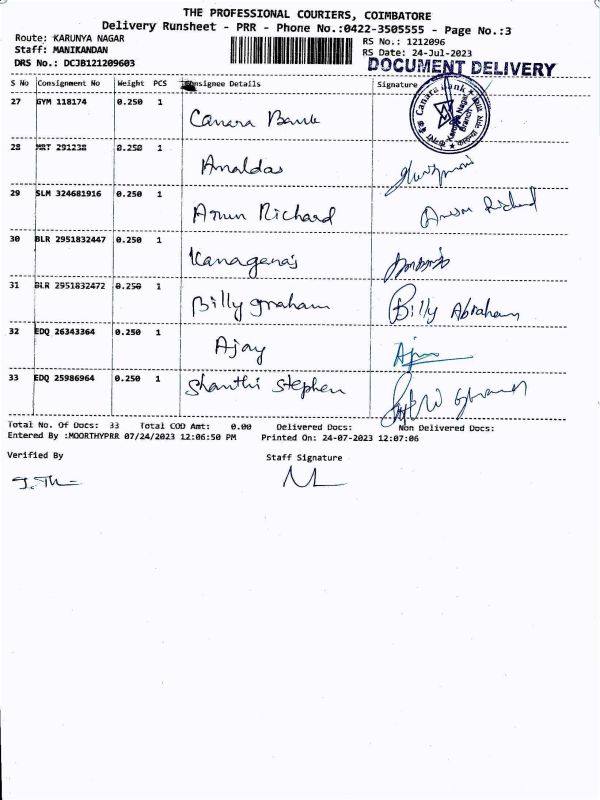 THE PROFESSIONAL COURIERS, COIMBATORE
Delivery Runsheet - PRR - Phone No.:0422-3505555 - Page No.:3
Route: KARUNYA NAGAR RS No.: 1212096
Staff: MANIKANDAN RS Date: 24-Jul-2023
DRS No.: DCJB121209603 DOCUMENT DELIVERY
S No Consignment No Weight PCS Consignee Details Signature
27 GYM 118174 0.250 1 Canara Bank
28 MRT 291238 0.250 1 Analdas
29 SLM 324681916 0.250 1 Arun Richard Arun Richard
30 BLR 2951832447 0.250 1 Kanagaraj
31 BLR 2951832472 0.250 1 Billy graham Billy Abraham
32 EDQ 26343364 0.250 1 Ajay
33 EDQ 25986964 0.250 1 Shanthi Stephen
Total No. Of Docs: 33 Total COD Amt: 0.00 Delivered Docs: Non Delivered Docs:
Entered By :MOORTHYPRR 07/24/2023 12:06:50 PM Printed On: 24-07-2023 12:07:06
Verified By Staff Signature